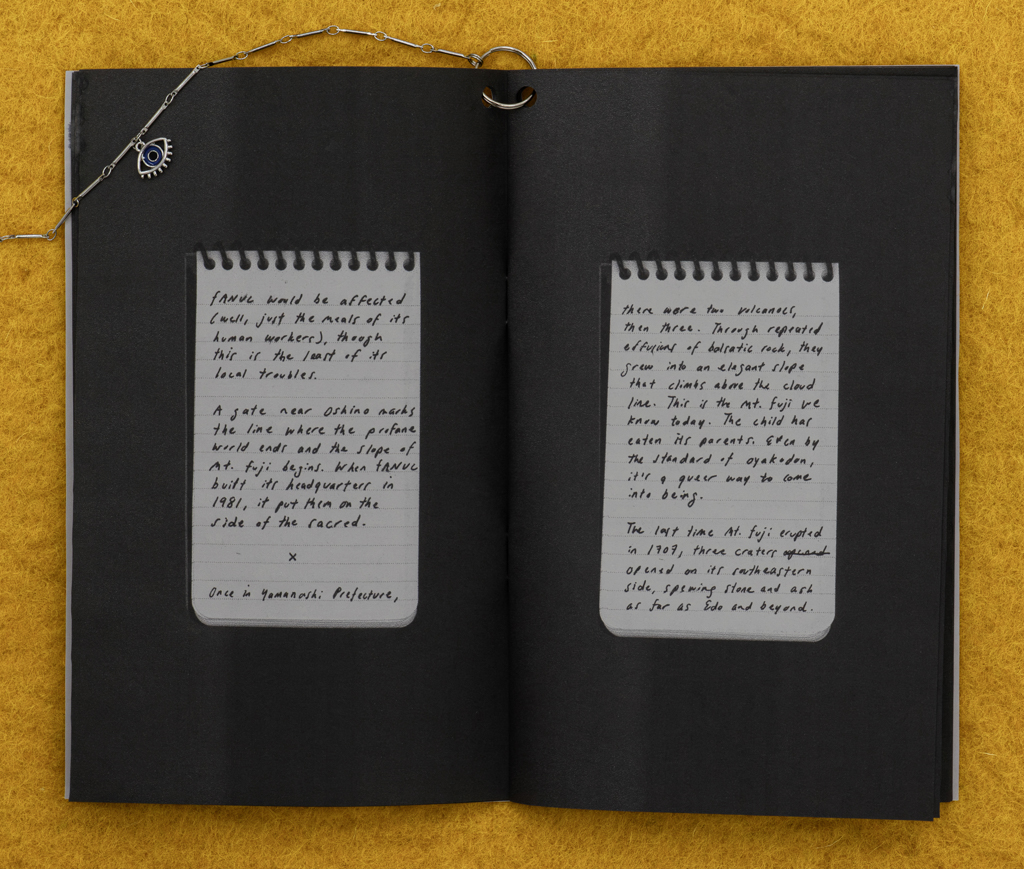 FANUC would be affected
(well, just the meals of its
human workers), though
this is the least of its
local troubles.
A gate near Oshino marks
the line where the profane
world ends and the slope of
Mt. Fuji begins. When FANUC
built its headquarters in
1981, it put them on the
side of the sacred.
x
Once in Yamanashi Prefecture,
there were two volcanoes,
then three. Through repeated
effusions of balsatic rock, they
grew into an elegant slope
that climbs above the cloud
line. This is the Mt. Fuji we
know today. The child has
eaten its parents. Even by
the standard of oyakodon,
it's a queer way to come
into being.
The last time Mt. Fuji erupted
in 1707, three craters
opened on its southeastern
side, spewing stone and ash
as far as Edo and beyond.